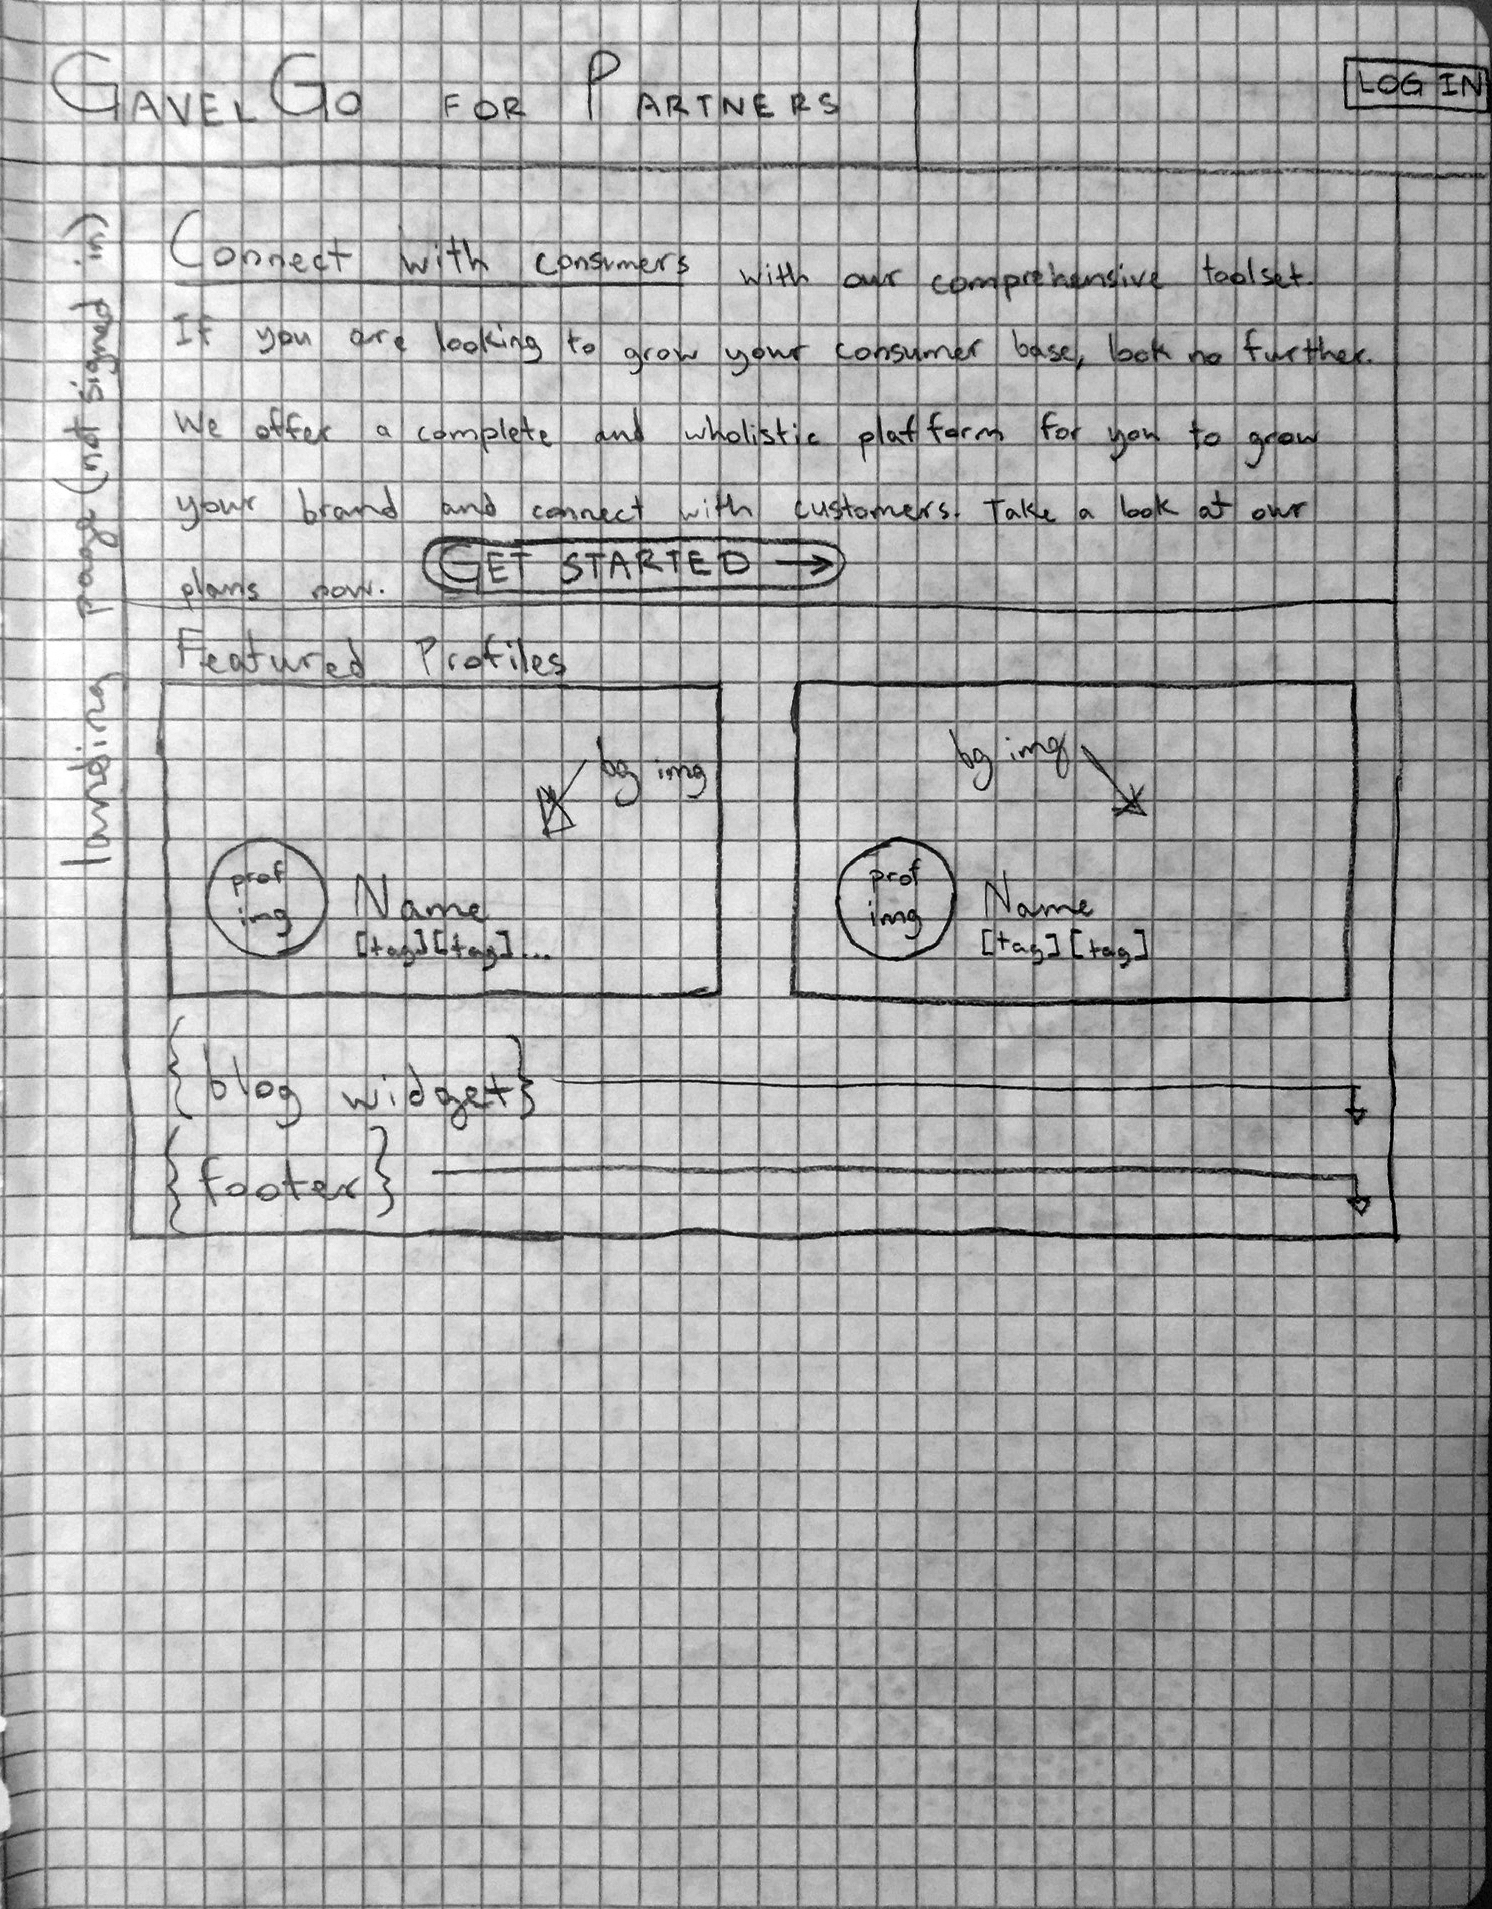 GAVELGO FOR PARTNERS
LOG IN
landing page (not signed in)
Connect with consumers with our comprehensive toolset.
If you are looking to grow your consumer base, look no further.
We offer a complete and wholistic platform for you to grow
your brand and connect with customers. Take a look at our
plans now. GET STARTED →
Featured Profiles
bg img
prof
img
Name
[tag][tag]...
bg img
prof
img
Name
[tag][tag]
{blog widget}
{footer}